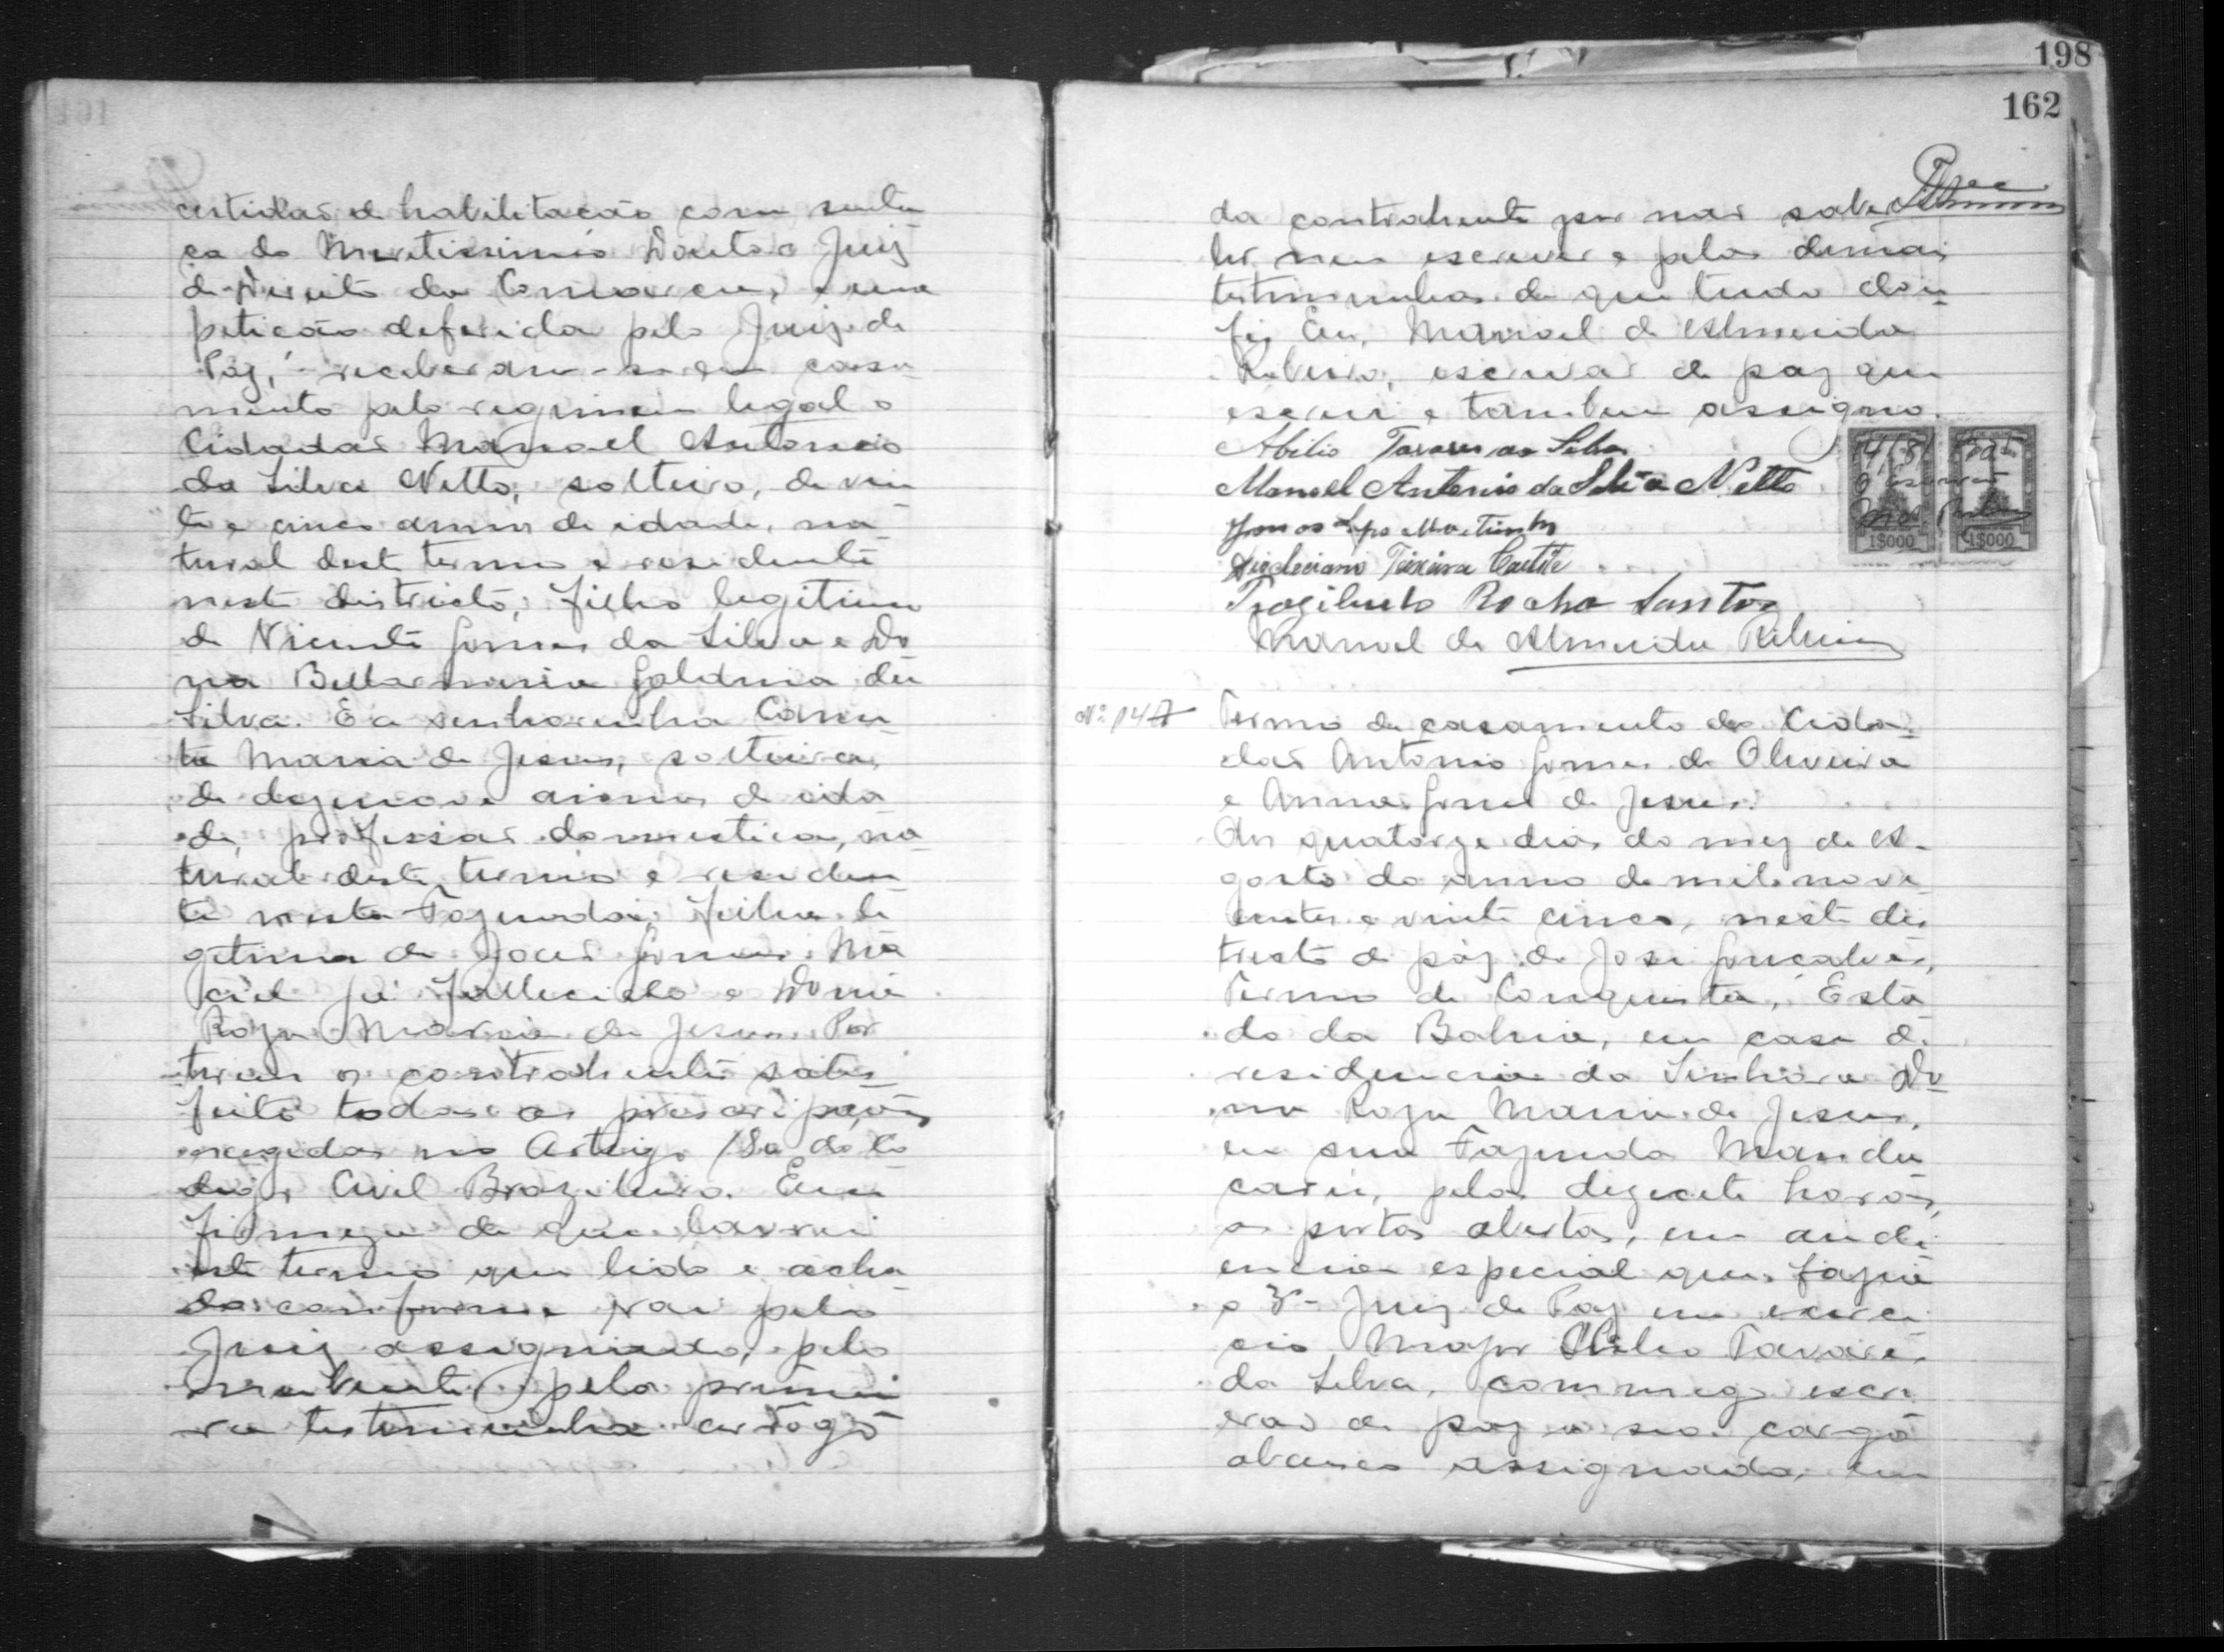 certidão de habilitação com senten
ça do Meretissimo Doutor Juiz
de Direito da Comarca, e uma
petição deferida pelo Juiz de
Paz, receberam-se em casa
mento pelo regimen legal o
Cidadão Manoel Antonio
da Silva Netto, solteiro, de vin
te e cinco annos de idade, na
tural deste termo e residente
neste districto, filho legitimo
de Vicente Gomes da Silva e Do
na Bellarmina Galdina da
Silva. E a senhorinha
Maria de Jesus, solteira,
de dezenove annos de ida
de, profissão domestica, na
tural deste termo e residen
te nesta Fazenda, filha le
gitima de João Gomes Ma
ciel já fallecido e Dona
Roza Maria de Jesus. Por
terem os contrahentes satis
feito todas as prescripções
exegidas no Artigo 180 do Co
digo Civil Brazileiro. Em
firmeza de que lavrei
este termo que lido e acha
do conforme vai pelo
Juiz assignado, pelo
nubente pela primei
ra testemunha a rogo
198
162
da contrahente por não saber
ler nem escrever e pelas demais
testemunhas de que tudo dou
fé Eu, Manoel de Almeida
Ribeiro, escrivão de paz que
escrevi e tambem assigno.
Abilio Tavares da Silva
Manoel Antonio da Silva Netto
Diocleciano Teixeira Caetité
Trazibulo Rocha Santos
Manoel de Almeida Ribeiro
14/8/1925
O Escrivão
1$000 1$000
Nº 147 Termo de casamento do Cida
dão Antonio Gomes de Oliveira
e Anna Gomes de Jesus.
Aos quatorze dias do mez de A-
gosto do anno de mil nove
centos e vinte cinco, neste dis
tricto de paz de José Gonçalves,
Termo de Conquista, Esta
do da Bahia, em casa de
residencia da Senhora Do
na Roza Maria de Jesus,
em sua Fazenda Mandu
carú, pelas dezecete horas,
as portas abertas, em audi
encia especial que fazia
o 3º Juiz de Paz em exerci
cio Major Abilio Tavares
da Silva, commigo escri
vão de paz a seu cargo
abaixo assignado, em